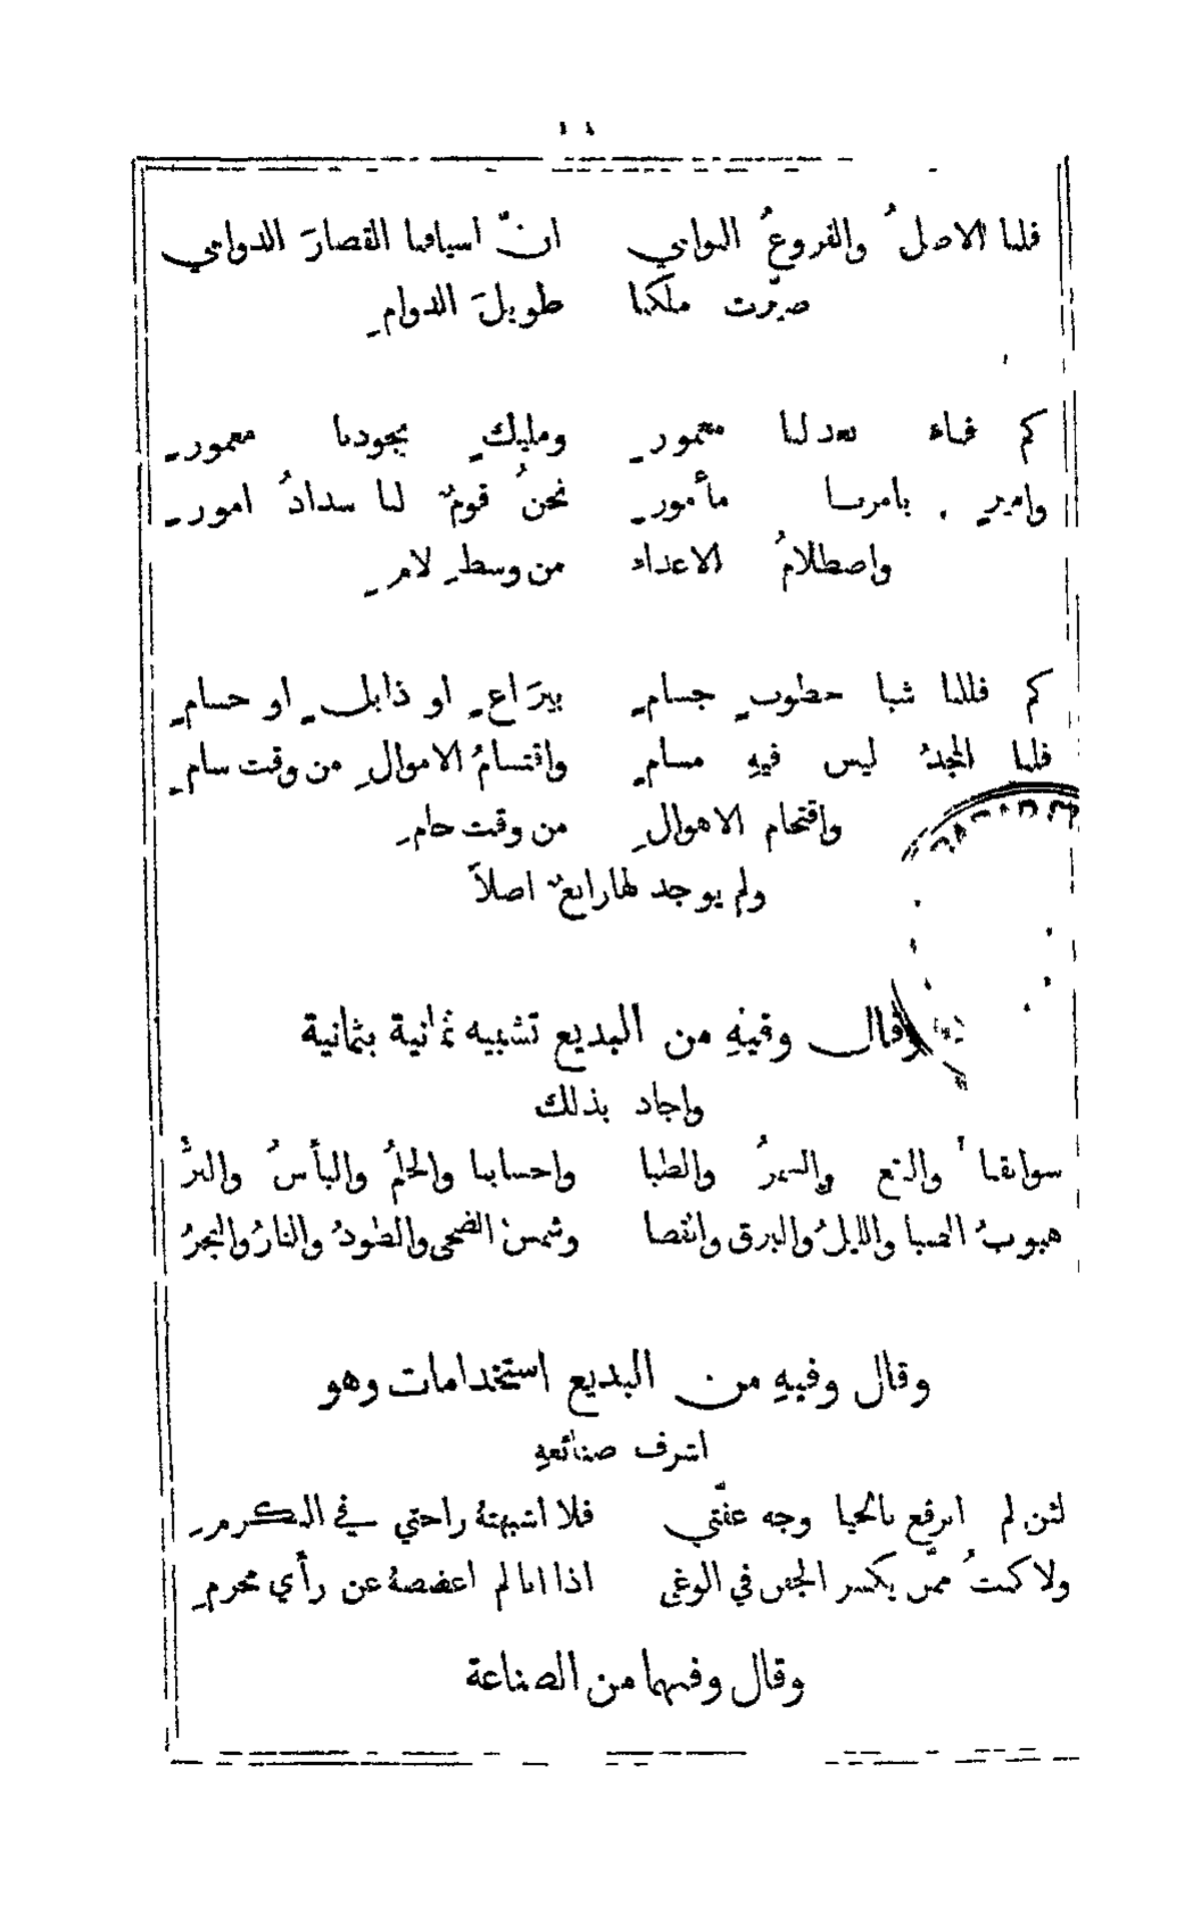 ١١
فلنا الاصلُ والفروعُ النوامي   انّ اسيافنا القصارَ الدوامي
صيّرت ملكنا   طويلَ الدوامِ
كم فناء بعدلنا معمورِ   ومليكٍ بجودنا مغمورِ
واميرٍ بامرنا مأمورِ   نحنُ قومٌ لنا سدادُ امورِ
واصطلامُ الاعداء   من وسطِ لامِ
كم فللنا شبا خطوبٍ جسامِ   بيَراعٍ او ذابلٍ او حسامِ
فلنا المجدُ ليس فيهِ مسامِ   واقتسامُ الاموالِ من وقت سامِ
واقتحام الاهوالِ   من وقت حامِ
ولم يوجد لها رابعٌ اصلاً
وقال وفيهِ من البديع تشبيه ثمانية بثمانية
واجاد بذلك
سوابقنا والنقع والسمرُ والظبا   واحسابنا والحلمُ والبأسُ والبرُّ
هبوبُ الصبا والليلُ والبرق والقضا   وشمسُ الضحى والطودُ والنارُ والبحرُ
وقال وفيهِ من البديع استخدامات وهو
اشرف صنائعهِ
لئن لم ابرقع بالحيا وجه عفّتي   فلا اشبهتهُ راحتي في التكرمِ
ولا كنتُ ممّن يكسر الجفن في الوغى   اذا انا لم اغضضهُ عن رأي محرمِ
وقال وفيها من الصناعة